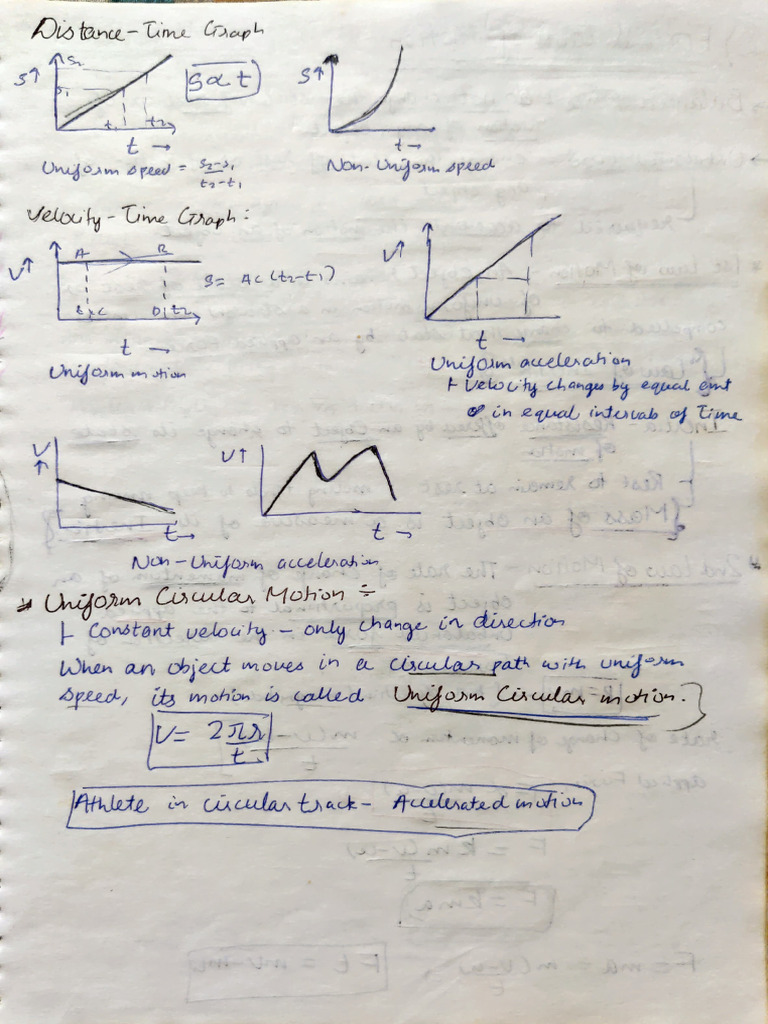 Distance-Time Graph
S↑ S2 S1 t1 t2 t →
S∝t
S↑ t →
Uniform speed = s2-s1/t2-t1
Non-Uniform speed
Velocity-Time Graph:
V↑ A B t1 C D t2 t →
S= AC(t2-t1)
V↑ t →
Uniform motion
Uniform acceleration
Velocity changes by equal amt
in equal intervals of Time
V↑ t→
V↑ t →
Non-Uniform acceleration
Uniform Circular Motion :-
Constant velocity - only change in direction
When an object moves in a circular path with uniform
speed, its motion is called Uniform Circular motion.
V= 2πr/t
Athlete in circular track- Accelerated motion